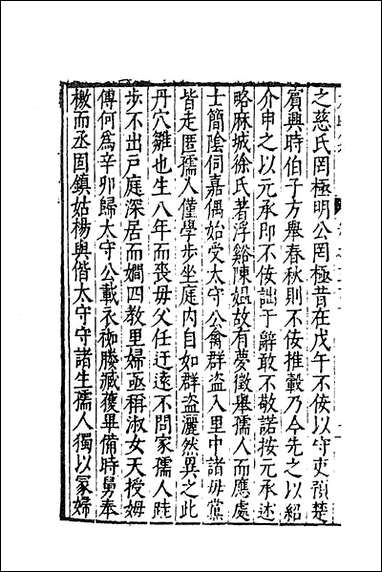 之慈氏罔極明公罔極昔在戊午不佞以守吏預楚
賓興時伯子方舉春秋則不佞推轂乃今先之以紹
介申之以元承即不佞詘于辭敢不敬諾按元承述
略麻城徐氏著浮谿陳媪故有夢徵舉孺人而應處
士簡陰伺嘉偶始受太守公禽群盜入里中諸毋黨
皆走匿孺人僅學步坐庭内自如群盜灑然異之此
丹穴雛也生八年而喪毋父任迂遠不問家孺人跬
步不出戶庭深居而嫺四教里婦亟稱淑女天授姆
傅何為辛卯歸太守公載衣袽滕臧獲畢備時舅奉
檄而丞固鎮姑楊與偕太守守諸生孺人獨以冢婦